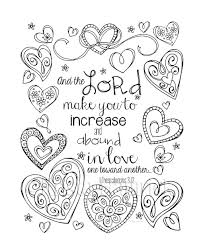 And the
LORD
make you to
increase
and
abound
in love
one toward another...
1 Thessalonians 3:12